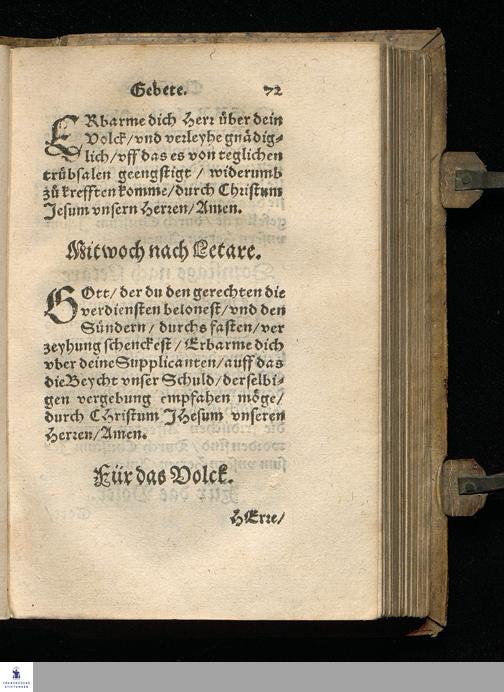 Gebete. 72
ERbarme dich Herr über dein
Volck/vnd verleyhe gnädig-
lich/vff das es von teglichen
trübsalen geengstigt / widerumb
zů krefften komme/durch Christum
Jesum vnsern Herren/Amen.
Mitwoch nach Letare.
GOtt/ der du den gerechten die
verdiensten belonest/vnd den
Sündern/ durchs fasten/ ver
zeyhung schenckest/ Erbarme dich
vber deine Supplicanten/auff das
die Beycht vnser Schuld/derselbi-
gen vergebung empfahen möge/
durch CHristum JHesum vnseren
Herren/Amen.
Für das Volck.
HErre/